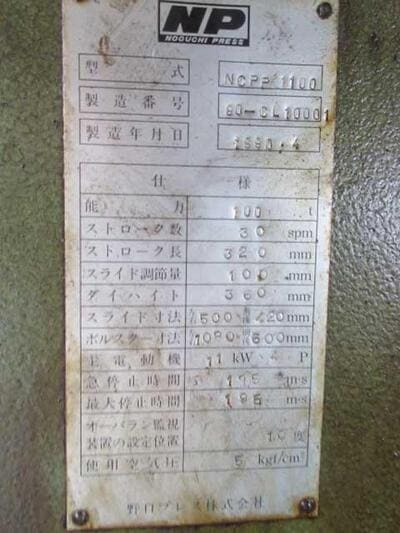 NP
NOGUCHI PRESS
型式 NCPP 1100
製造番号 90-CL10001
製造年月日 1990.4
仕様
能力 100 t
ストローク数 30 spm
ストローク長 320 mm
スライド調節量 100 mm
ダイハイト 360 mm
スライド寸法 500 420mm
ボルスター寸法 600mm
主電動機 11 kW 4 P
急停止時間 195 m·s
最大停止時間 195 m·s
オーバラン監視
装置の設定位置 10度
使用空気圧 5 kgf/cm²
野口プレス株式会社